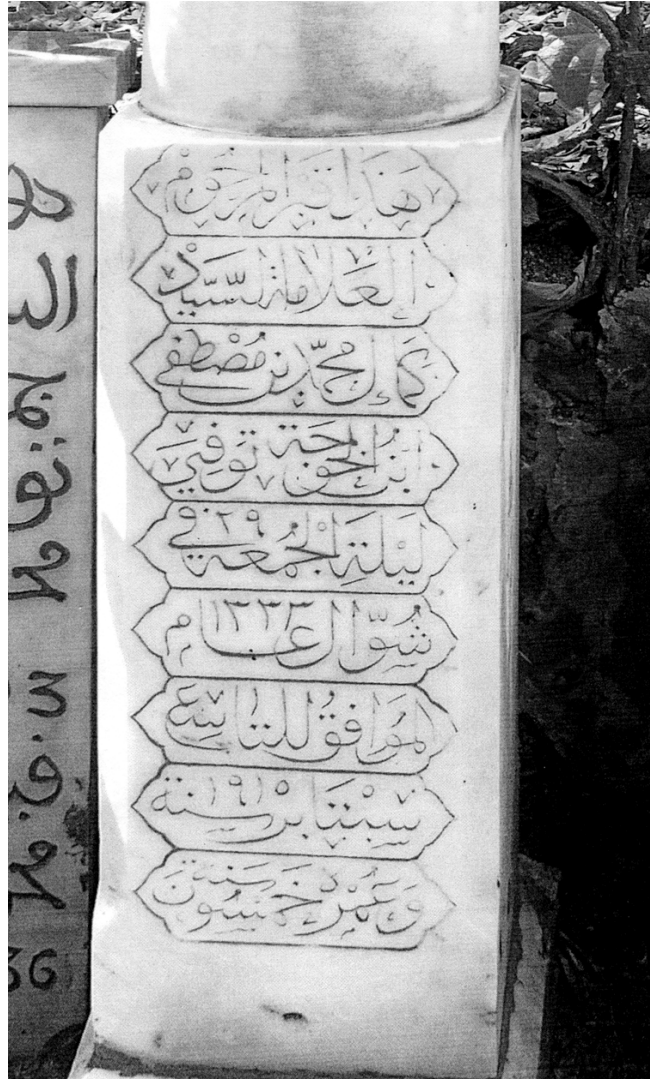 هَذَا قبر المرحُوم
العَلاَّمة السَّيِّد
كمال محمّد بن مُصْطفى
ابن الخُوجَة توَفِي
ليْلَةِ الجُمعَة في ٢٩
شوّال عام ١٣٣٣
الموَافقُ للتاسِع
سِبْتَابر سنة ١٩١٥
وَعُمْرُهُ خَمْسُونَ سَنَة